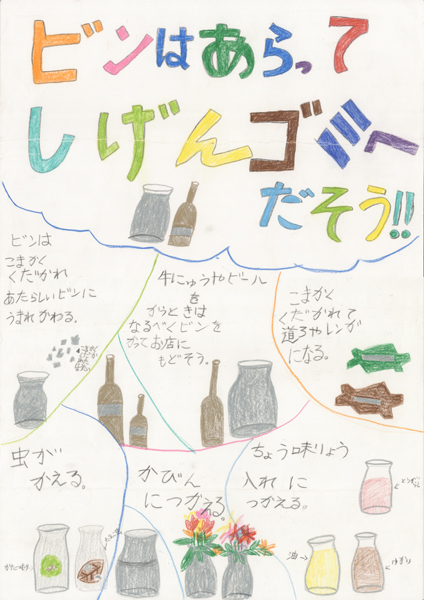 ビンはあらって
しげんゴミへ
だそう!!
ビンは
こまかく
くだかれ
あたらしいビンに
うまれかわる。
牛にゅうやビール
を
かうときは
なるべくビンを
かってお店に
もどそう。
こまかく
くだかれて
道ろやレンガ
になる。
虫が
かえる。
かびん
につかえる。
ちょう味りょう
入れに
つかえる。
油→